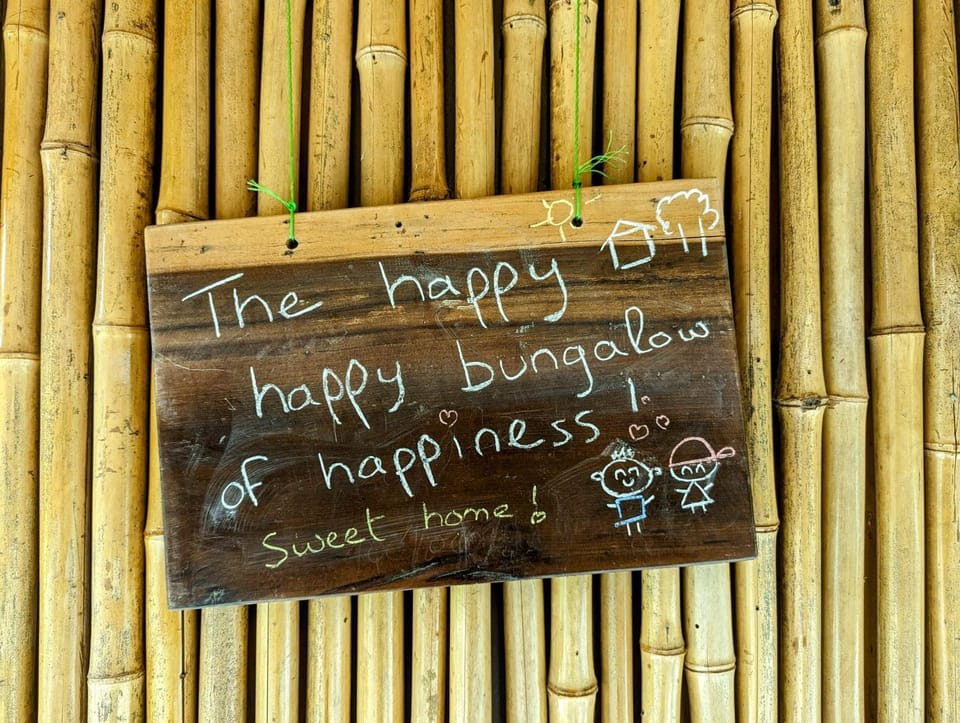 The happy
happy bungalow
of happiness !
Sweet home !